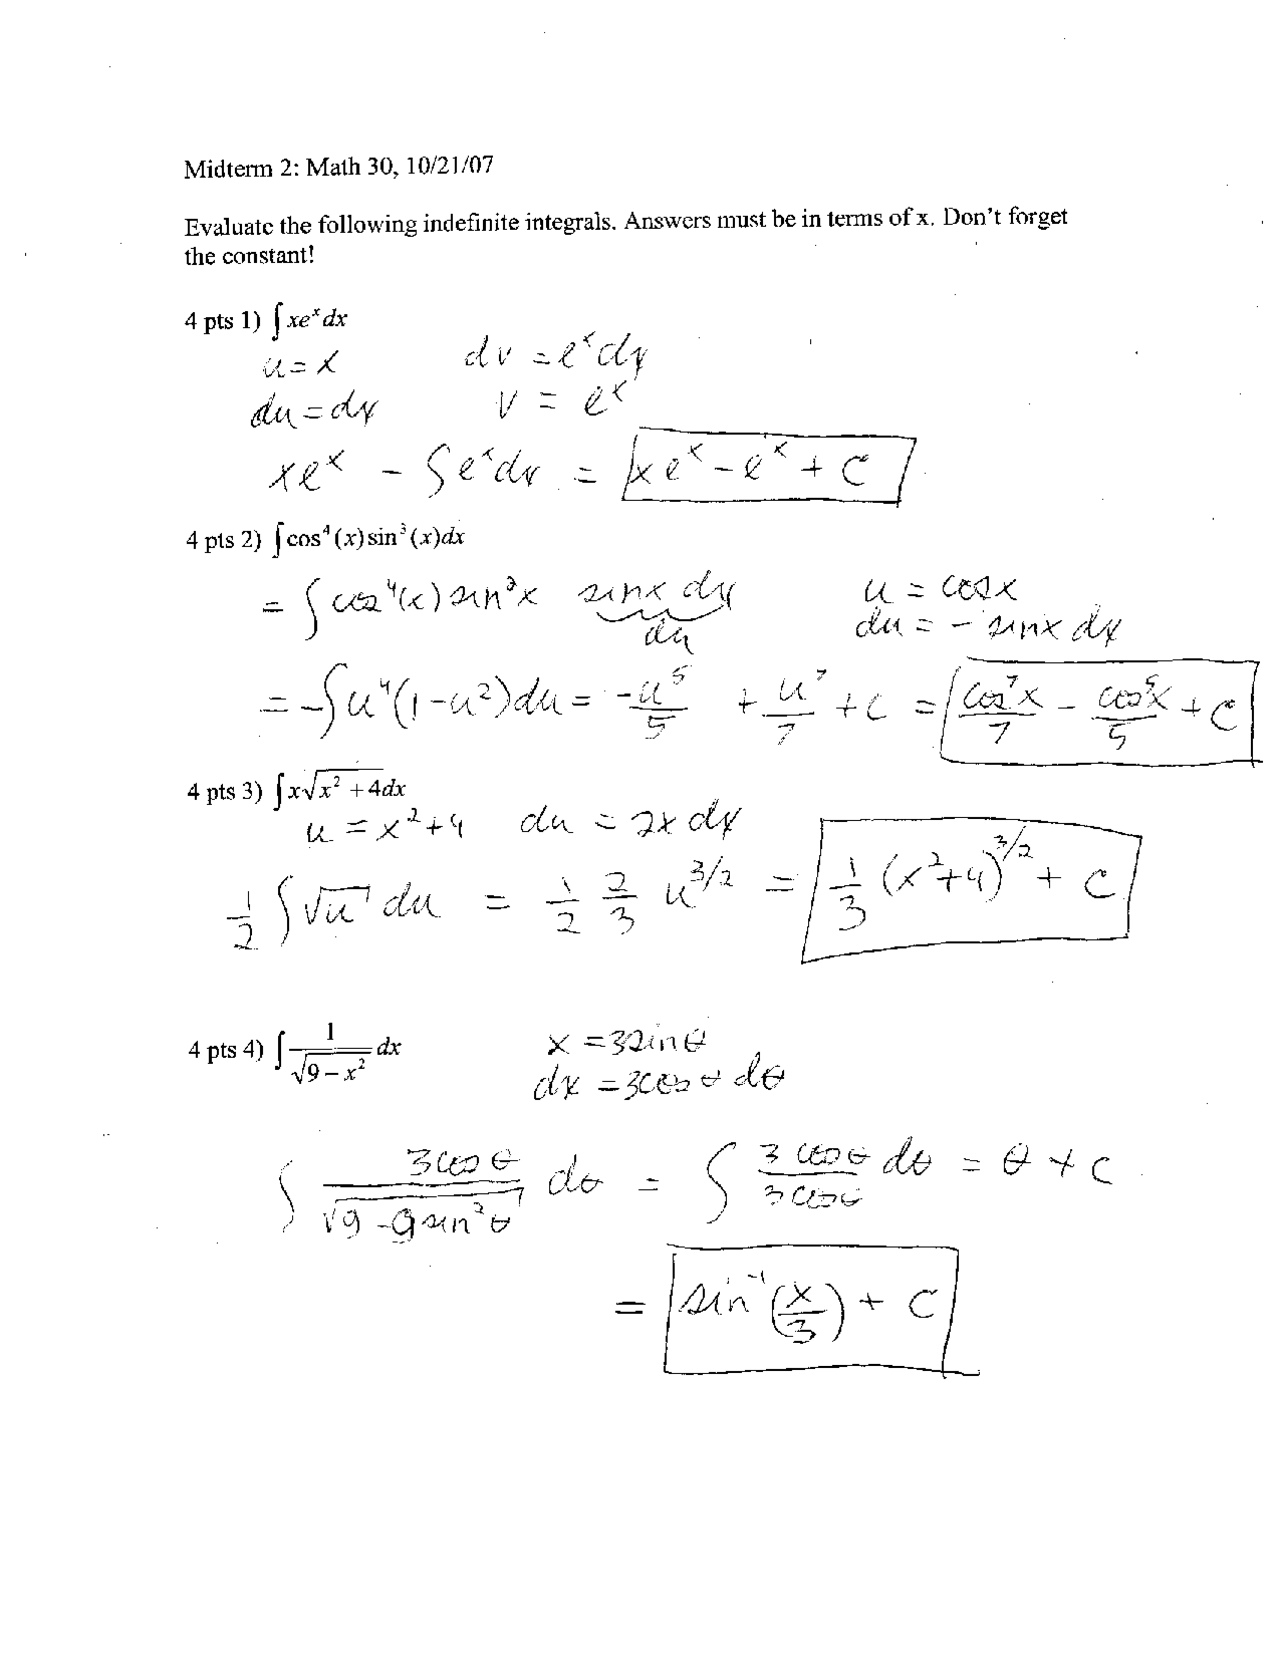 Midterm 2: Math 30, 10/21/07
Evaluate the following indefinite integrals. Answers must be in terms of x. Don't forget
the constant!
4 pts 1) ∫ xeˣ dx
u = x    dv = eˣ dx
du = dx    v = eˣ
xeˣ - ∫ eˣ dx = xeˣ - eˣ + C
4 pts 2) ∫ cos⁴(x) sin³(x) dx
= ∫ cos⁴(x) sin²x sinx dx    u = cosx
du    du = - sinx dx
= -∫ u⁴(1-u²) du = -u⁵/5 + u⁷/7 + C = cos⁷x/7 - cos⁵x/5 + C
4 pts 3) ∫ x√(x² + 4) dx
u = x² + 4    du = 2x dx
1/2 ∫ √u du = 1/2 2/3 u^(3/2) = 1/3 (x²+4)^(3/2) + C
4 pts 4) ∫ 1/√(9 - x²) dx    x = 3sinθ
dx = 3cosθ dθ
∫ 3cosθ/√(9 - 9sin²θ) dθ = ∫ 3cosθ/3cosθ dθ = θ + C
= sin⁻¹(x/3) + C